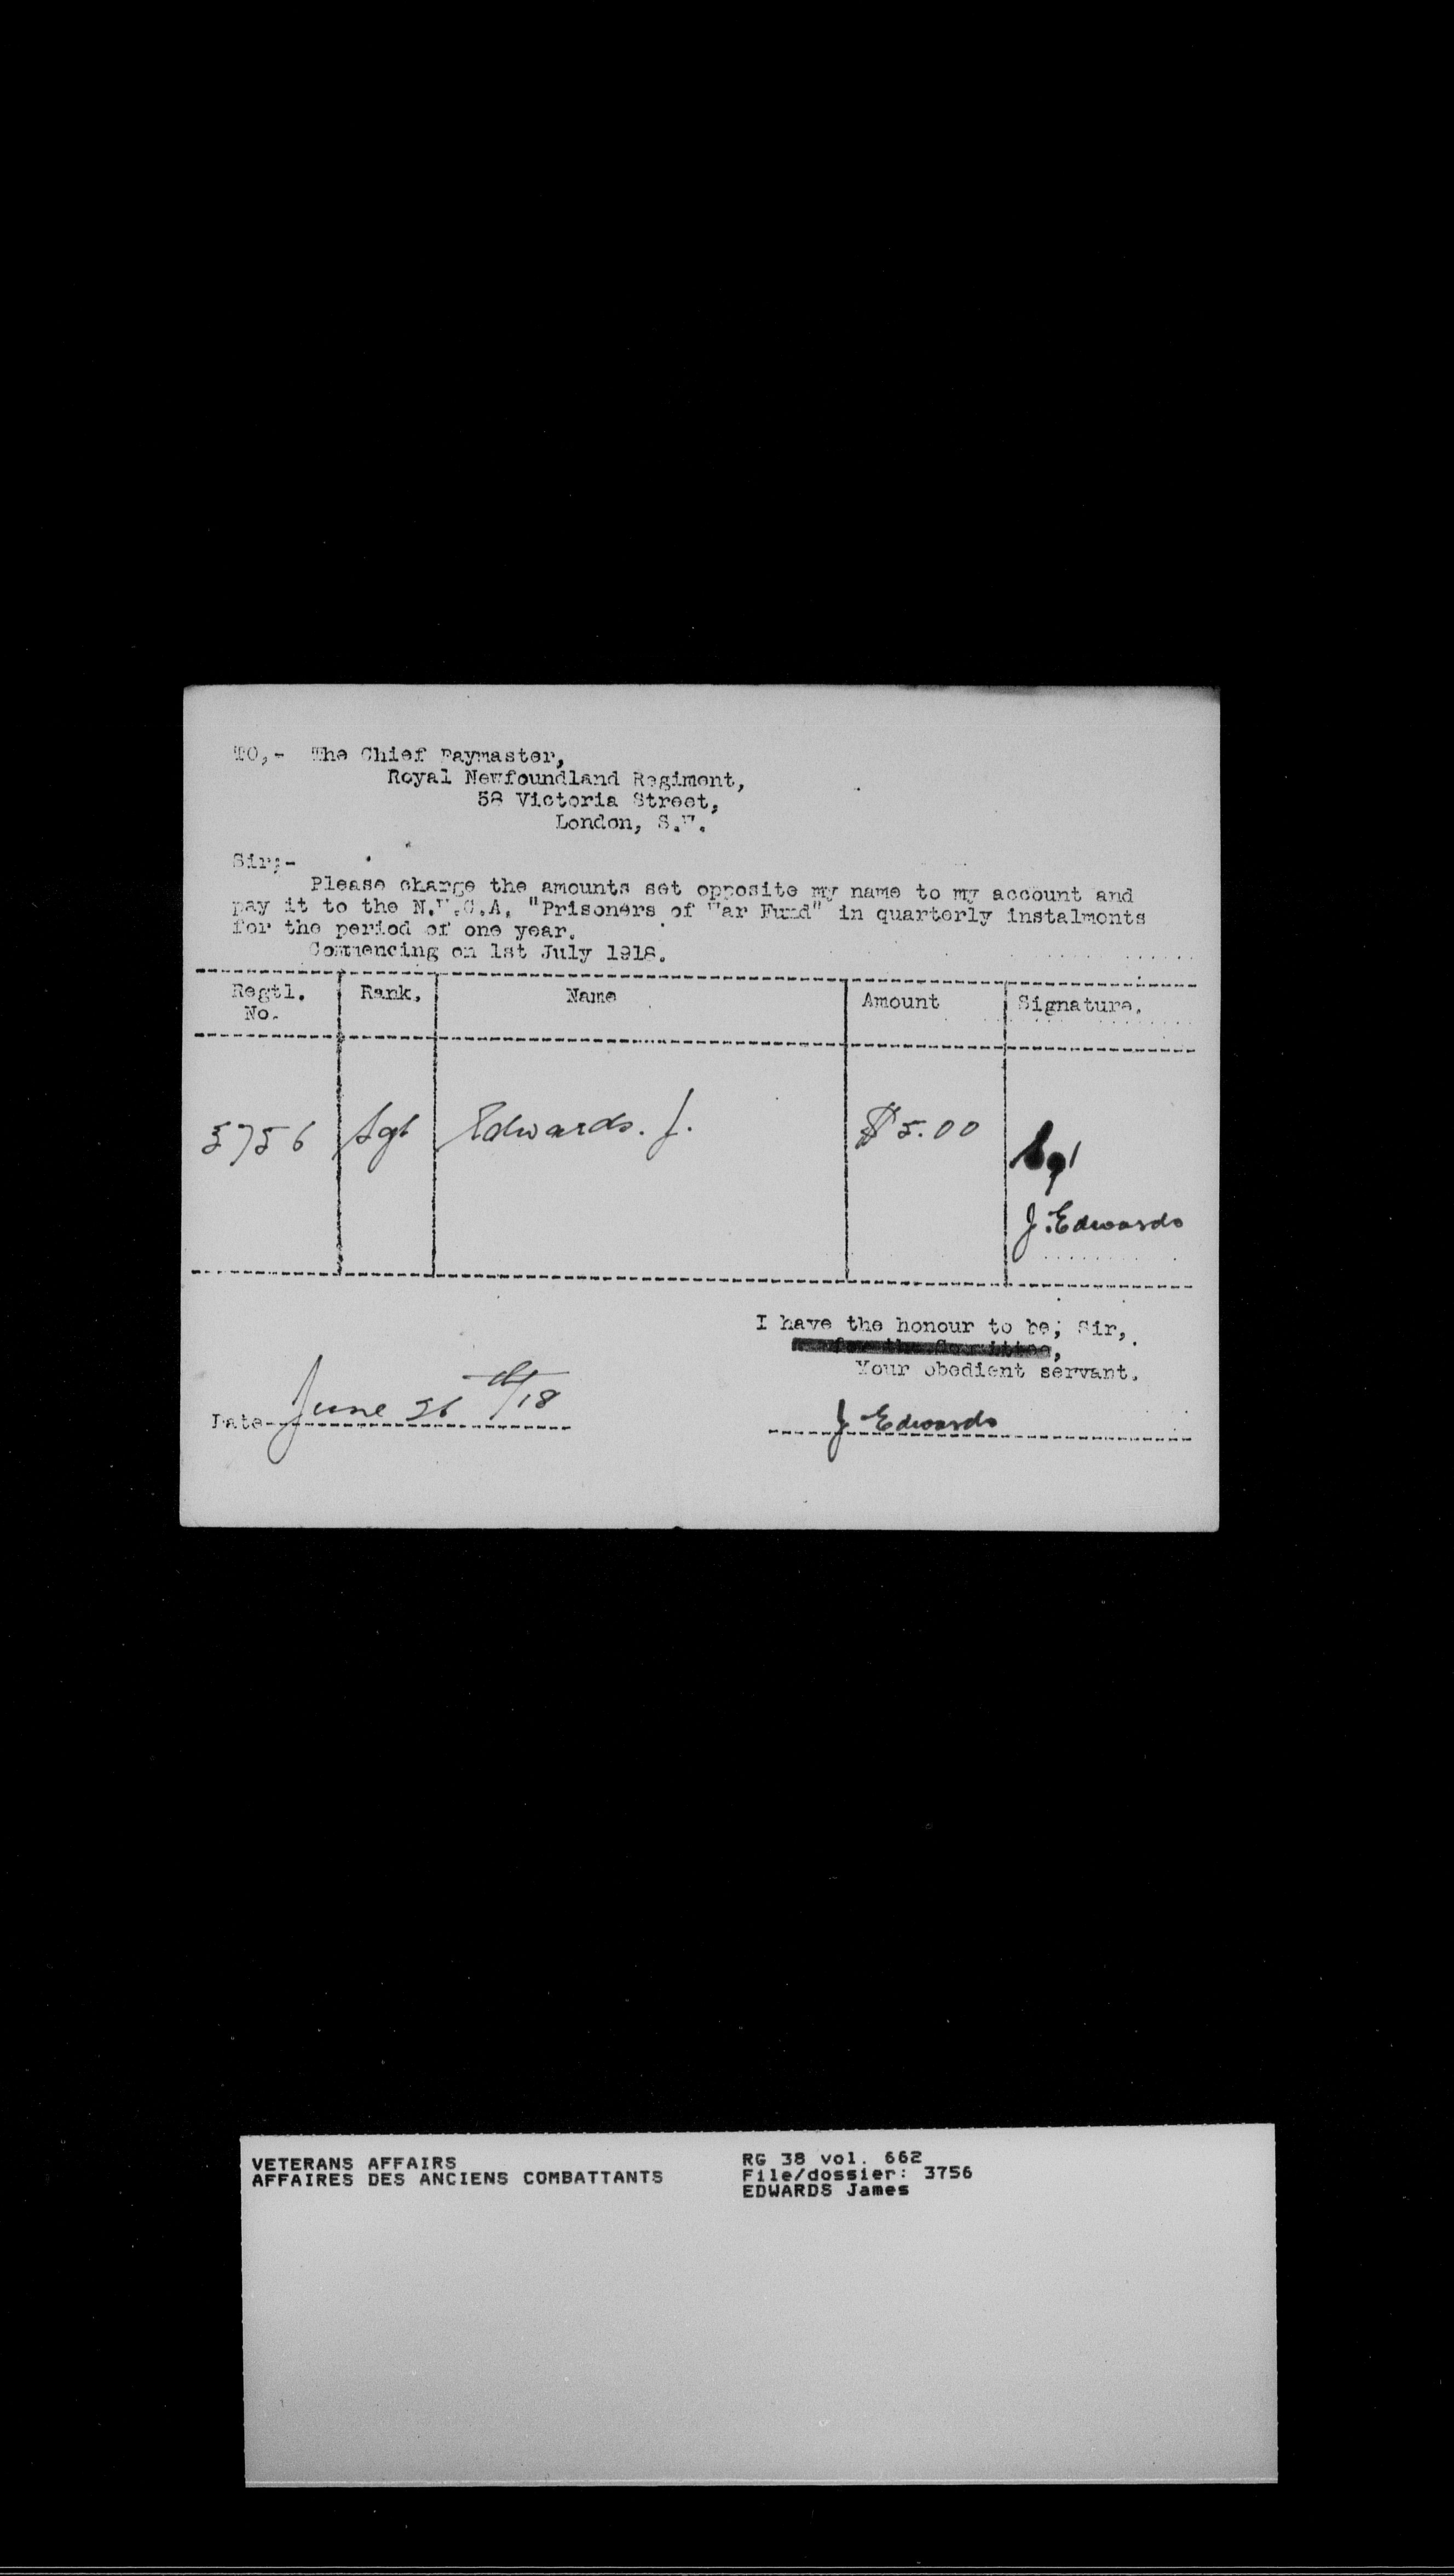 TO,- The Chief Paymaster,
Royal Newfoundland Regiment,
58 Victoria Street,
London, S.W.
Sir;-
Please charge the amounts set opposite my name to my account and
pay it to the N.W.C.A. "Prisoners of War Fund" in quarterly instalments
for the period of one year.
Commencing on 1st July 1918.
Regtl. No. Rank. Name Amount Signature.
3756 Sgt Edwards. J. $5.00 Sgt
J. Edwards
I have the honour to be; Sir,
for the Committee,
Your obedient servant.
Date June 26th/18
J Edwards
VETERANS AFFAIRS
AFFAIRES DES ANCIENS COMBATTANTS
RG 38 vol. 662
File/dossier: 3756
EDWARDS James